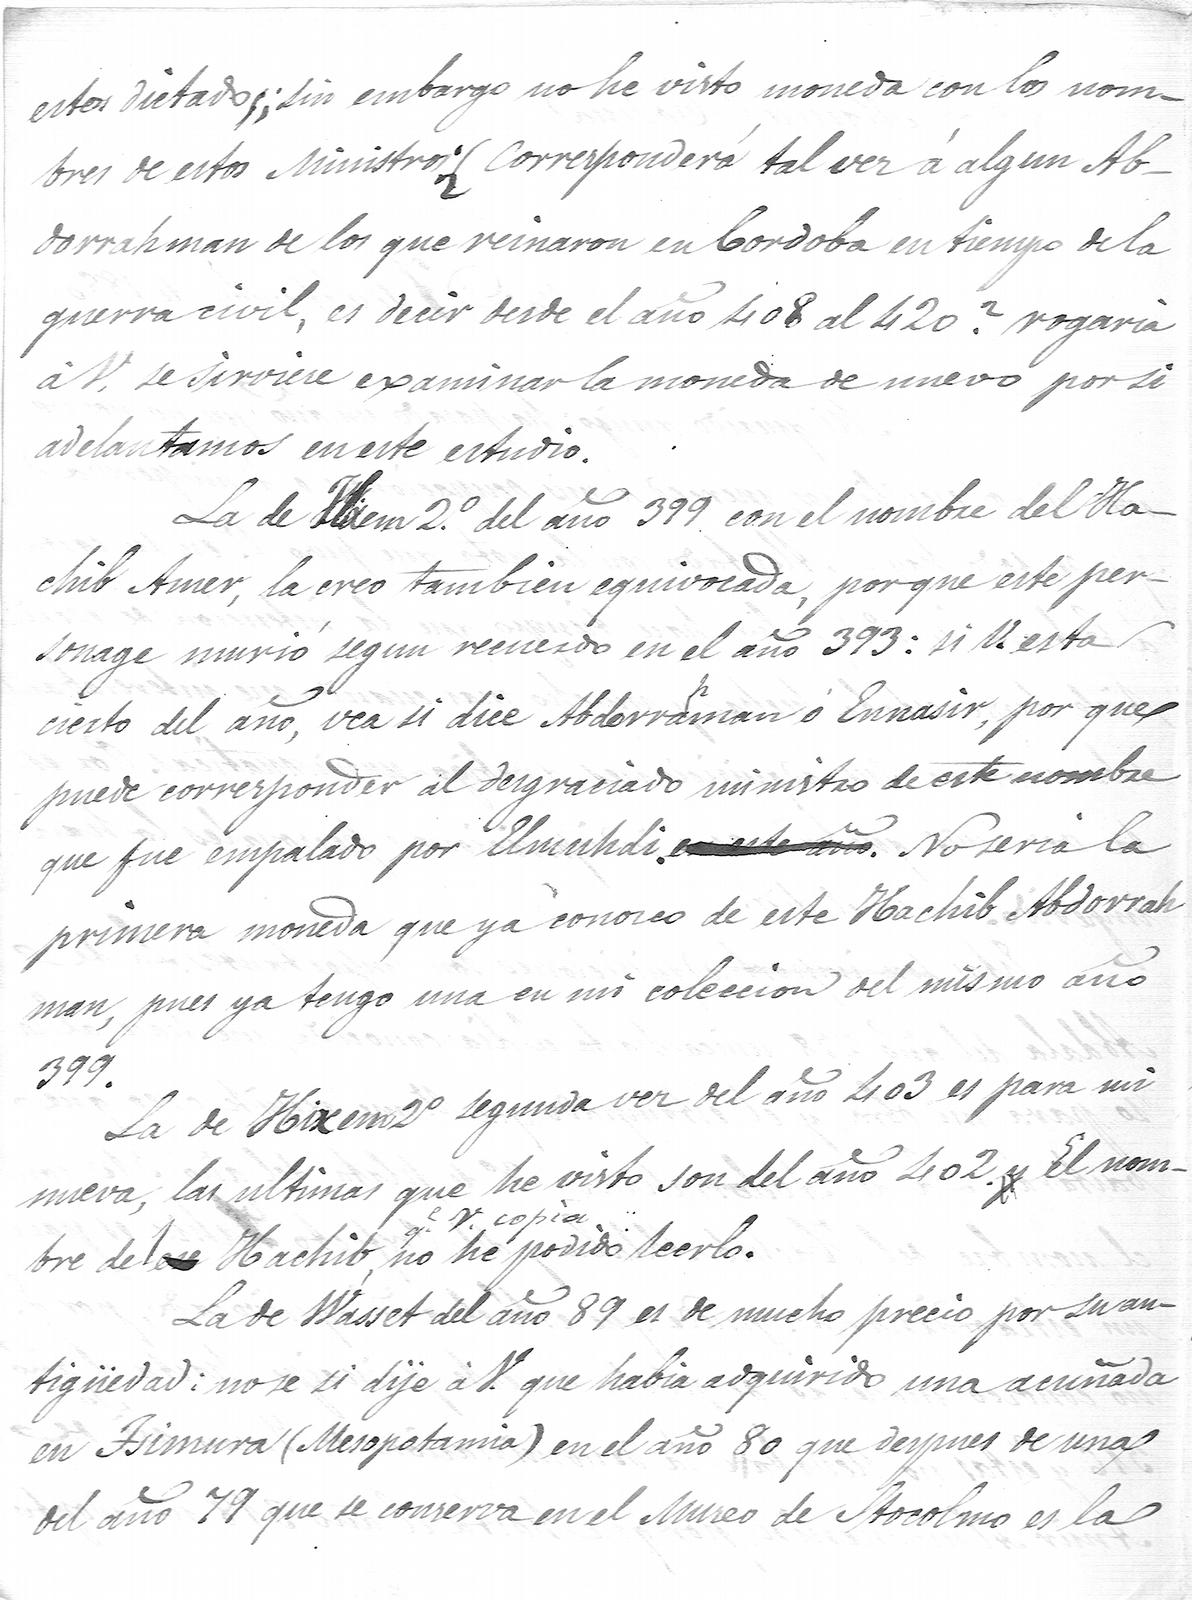 estos dictados; sin embargo no he visto moneda con los nom-
bres de estos Ministros ¿Corresponderá tal vez á algun Ab-
dorrahman de los que reinaron en Cordoba en tiempo de la
guerra civil, es decir desde el año 408 al 420? rogaria
á V. se sirviese examinar la moneda de nuevo por si
adelantamos en este estudio.
La de Hixem 2.º del año 399 con el nombre del Ha-
chib Amer, la creo tambien equivocada, porque este per-
sonage murió segun recuerdo en el año 393: si V. esta
cierto del año, vea si dice Abdorrahman ó Ennasir, por que
puede corresponder al desgraciado ministro de este nombre
que fue empalado por Elmuhdi. en este año. No seria la
primera moneda que ya conozco de este Hachib Abdorrah
man, pues ya tengo una en mi coleccion del mismo año
399.
La de Hixem 2º segunda vez del año 403 es para mi
nueva, las ultimas que he visto son del año 402. y El nom-
bre del ese Hachib, q.e V. copia no he podido leerlo.
La de Wasset del año 89 es de mucho precio por su an-
tigüedad: no se si dije á V. que habia adquirido una acuñada
en Tsimura (Mesopotamia) en el año 80 que despues de una
del año 79 que se conserva en el Museo de Stocolmo es la